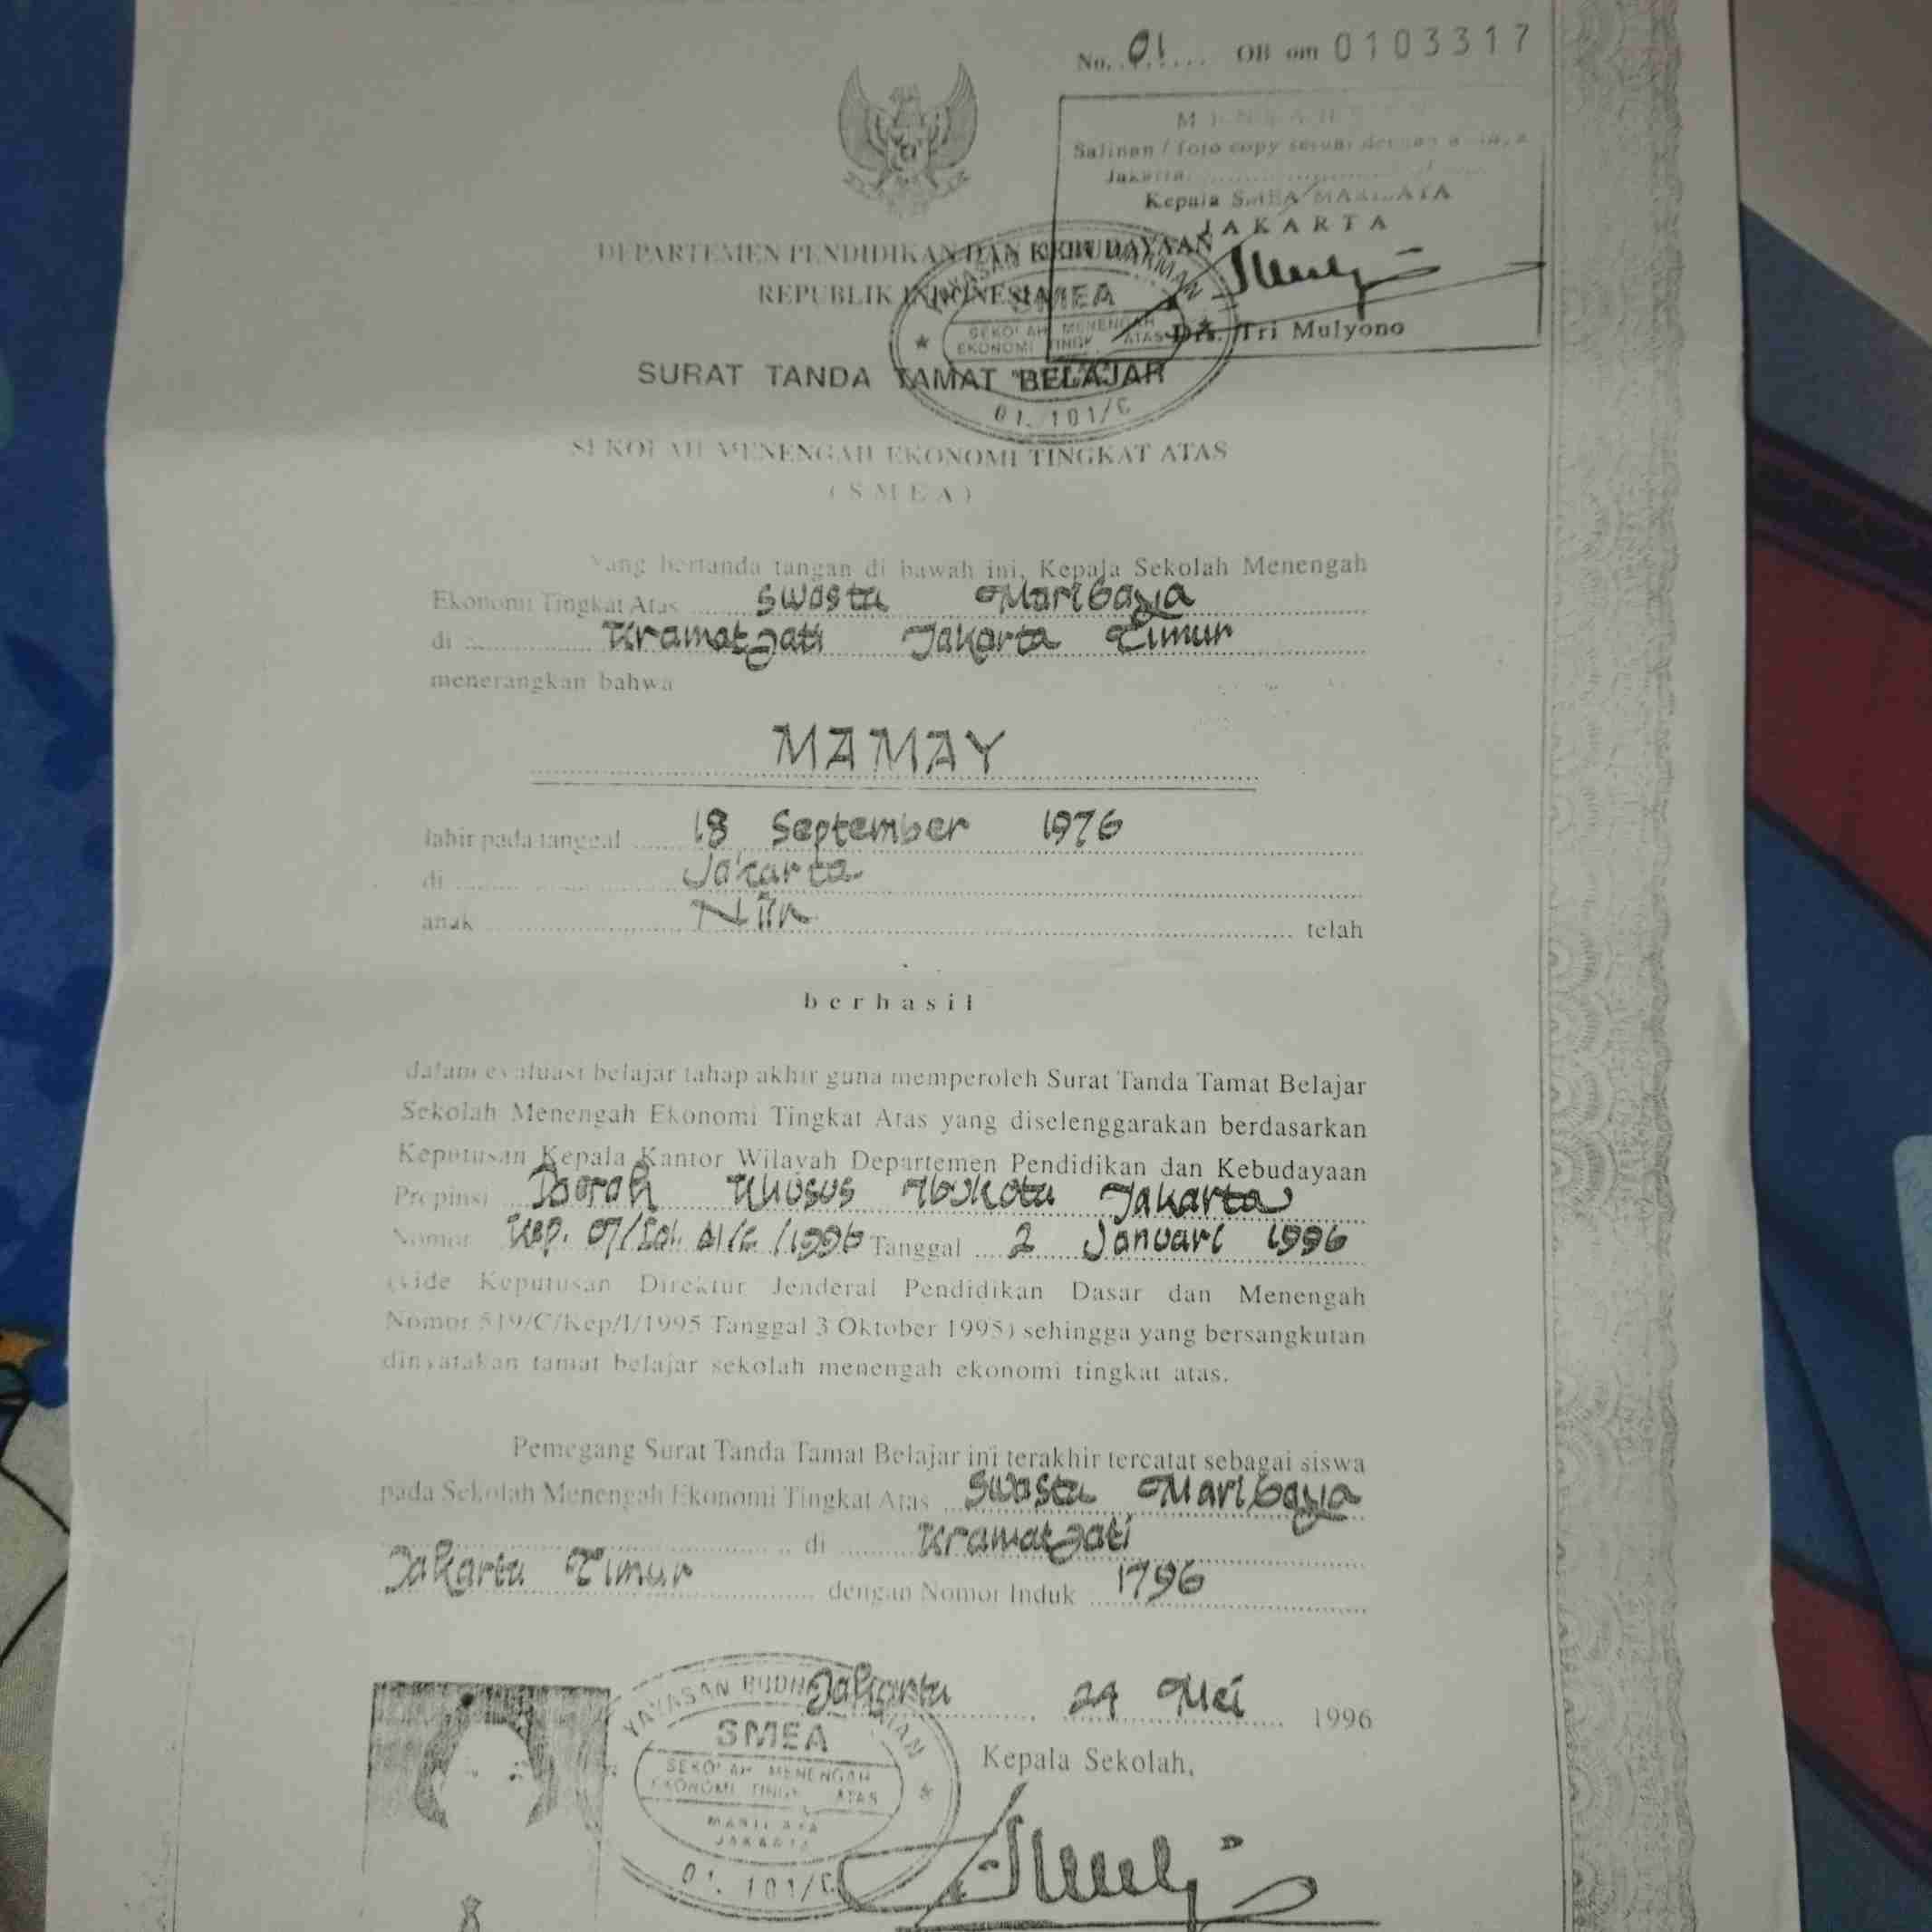 No. 01 OB om 0103317
Salinan / foto copy sesuai dengan
Jakarta
Kepala SMEA MARIBAYA
JAKARTA
Drs. Tri Mulyono
DEPARTEMEN PENDIDIKAN DAN KEBUDAYAAN
REPUBLIK INDONESIA
SMEA
SEKOLAH MENENGAH
EKONOMI TINGK. ATAS
01. 101/C
SURAT TANDA TAMAT BELAJAR
SEKOLAH MENENGAH EKONOMI TINGKAT ATAS
(SMEA)
Yang bertanda tangan di bawah ini, Kepala Sekolah Menengah
Ekonomi Tingkat Atas Swasta Maribaya
di Kramatjati Jakarta Timur
menerangkan bahwa
MAMAY
lahir pada tanggal 18 September 1976
di Jakarta
anak Niin telah
berhasil
dalam evaluasi belajar tahap akhir guna memperoleh Surat Tanda Tamat Belajar
Sekolah Menengah Ekonomi Tingkat Atas yang diselenggarakan berdasarkan
Keputusan Kepala Kantor Wilayah Departemen Pendidikan dan Kebudayaan
Propinsi Daerah Khusus Ibukota Jakarta
Nomor Kep. /1996 Tanggal 2 Januari 1996
(vide Keputusan Direktur Jenderal Pendidikan Dasar dan Menengah
Nomor 519/C/Kep/I/1995 Tanggal 3 Oktober 1995) sehingga yang bersangkutan
dinyatakan tamat belajar sekolah menengah ekonomi tingkat atas.
Pemegang Surat Tanda Tamat Belajar ini terakhir tercatat sebagai siswa
pada Sekolah Menengah Ekonomi Tingkat Atas Swasta Maribaya
di Kramatjati
Jakarta Timur dengan Nomor Induk 1796
Jakarta 24 Mei 1996
Kepala Sekolah,
YAYASAN
SMEA
SEKOLAH MENENGAH
EKONOMI TINGK. ATAS
MARIBAYA
JAKARTA
01. 101/C